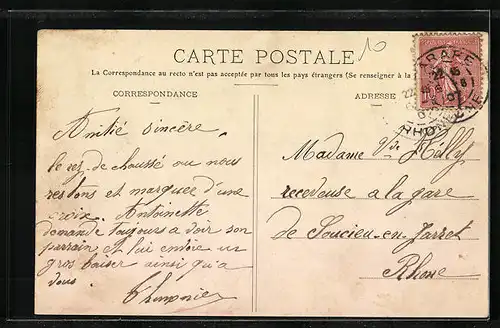 10
CARTE POSTALE
La Correspondance au recto n'est pas acceptée par tous les pays étrangers (Se renseigner à la
CORRESPONDANCE
ADRESSE
TARARE
RHONE
Amitié sincère
le rez de chaussé ou nous
restons et marquee d'une
croix. Antoinette
demande toujours a voir son
parrain et lui envoie un
gros baiser ainsi qu'a
vous.
Madame Vve
receveuse a la gare
de Soucieu-en-Jarret
Rhone